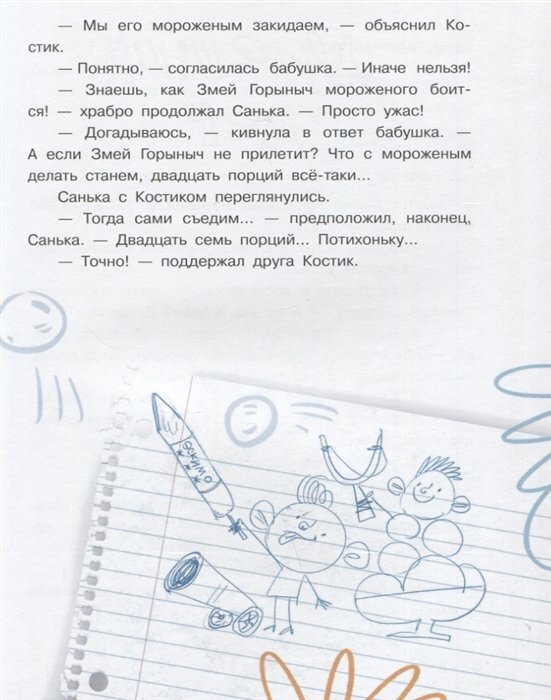 — Мы его мороженым закидаем, — объяснил Ко-
стик.
— Понятно, — согласилась бабушка. — Иначе нельзя!
— Знаешь, как Змей Горыныч мороженого боит-
ся! — храбро продолжал Санька. — Просто ужас!
— Догадываюсь, — кивнула в ответ бабушка. —
А если Змей Горыныч не прилетит? Что с мороженым
делать станем, двадцать порций всё-таки...
Санька с Костиком переглянулись.
— Тогда сами съедим... — предположил, наконец,
Санька. — Двадцать семь порций... Потихоньку...
— Точно! — поддержал друга Костик.